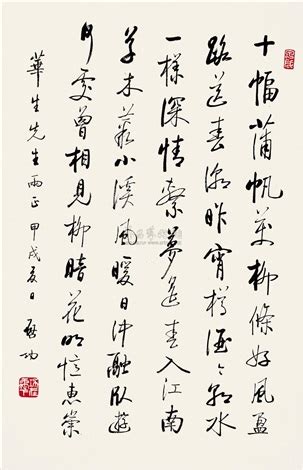 十幅蒲帆萬柳條好風盈
路送春潮昨宵樽酒今朝水
一樣深情繫夢遙春入江南
草木小溪風暖日沖融臥遊
何處曾相見柳暗花明憶惠崇
華生先生雨正 甲戌夏日 啟功